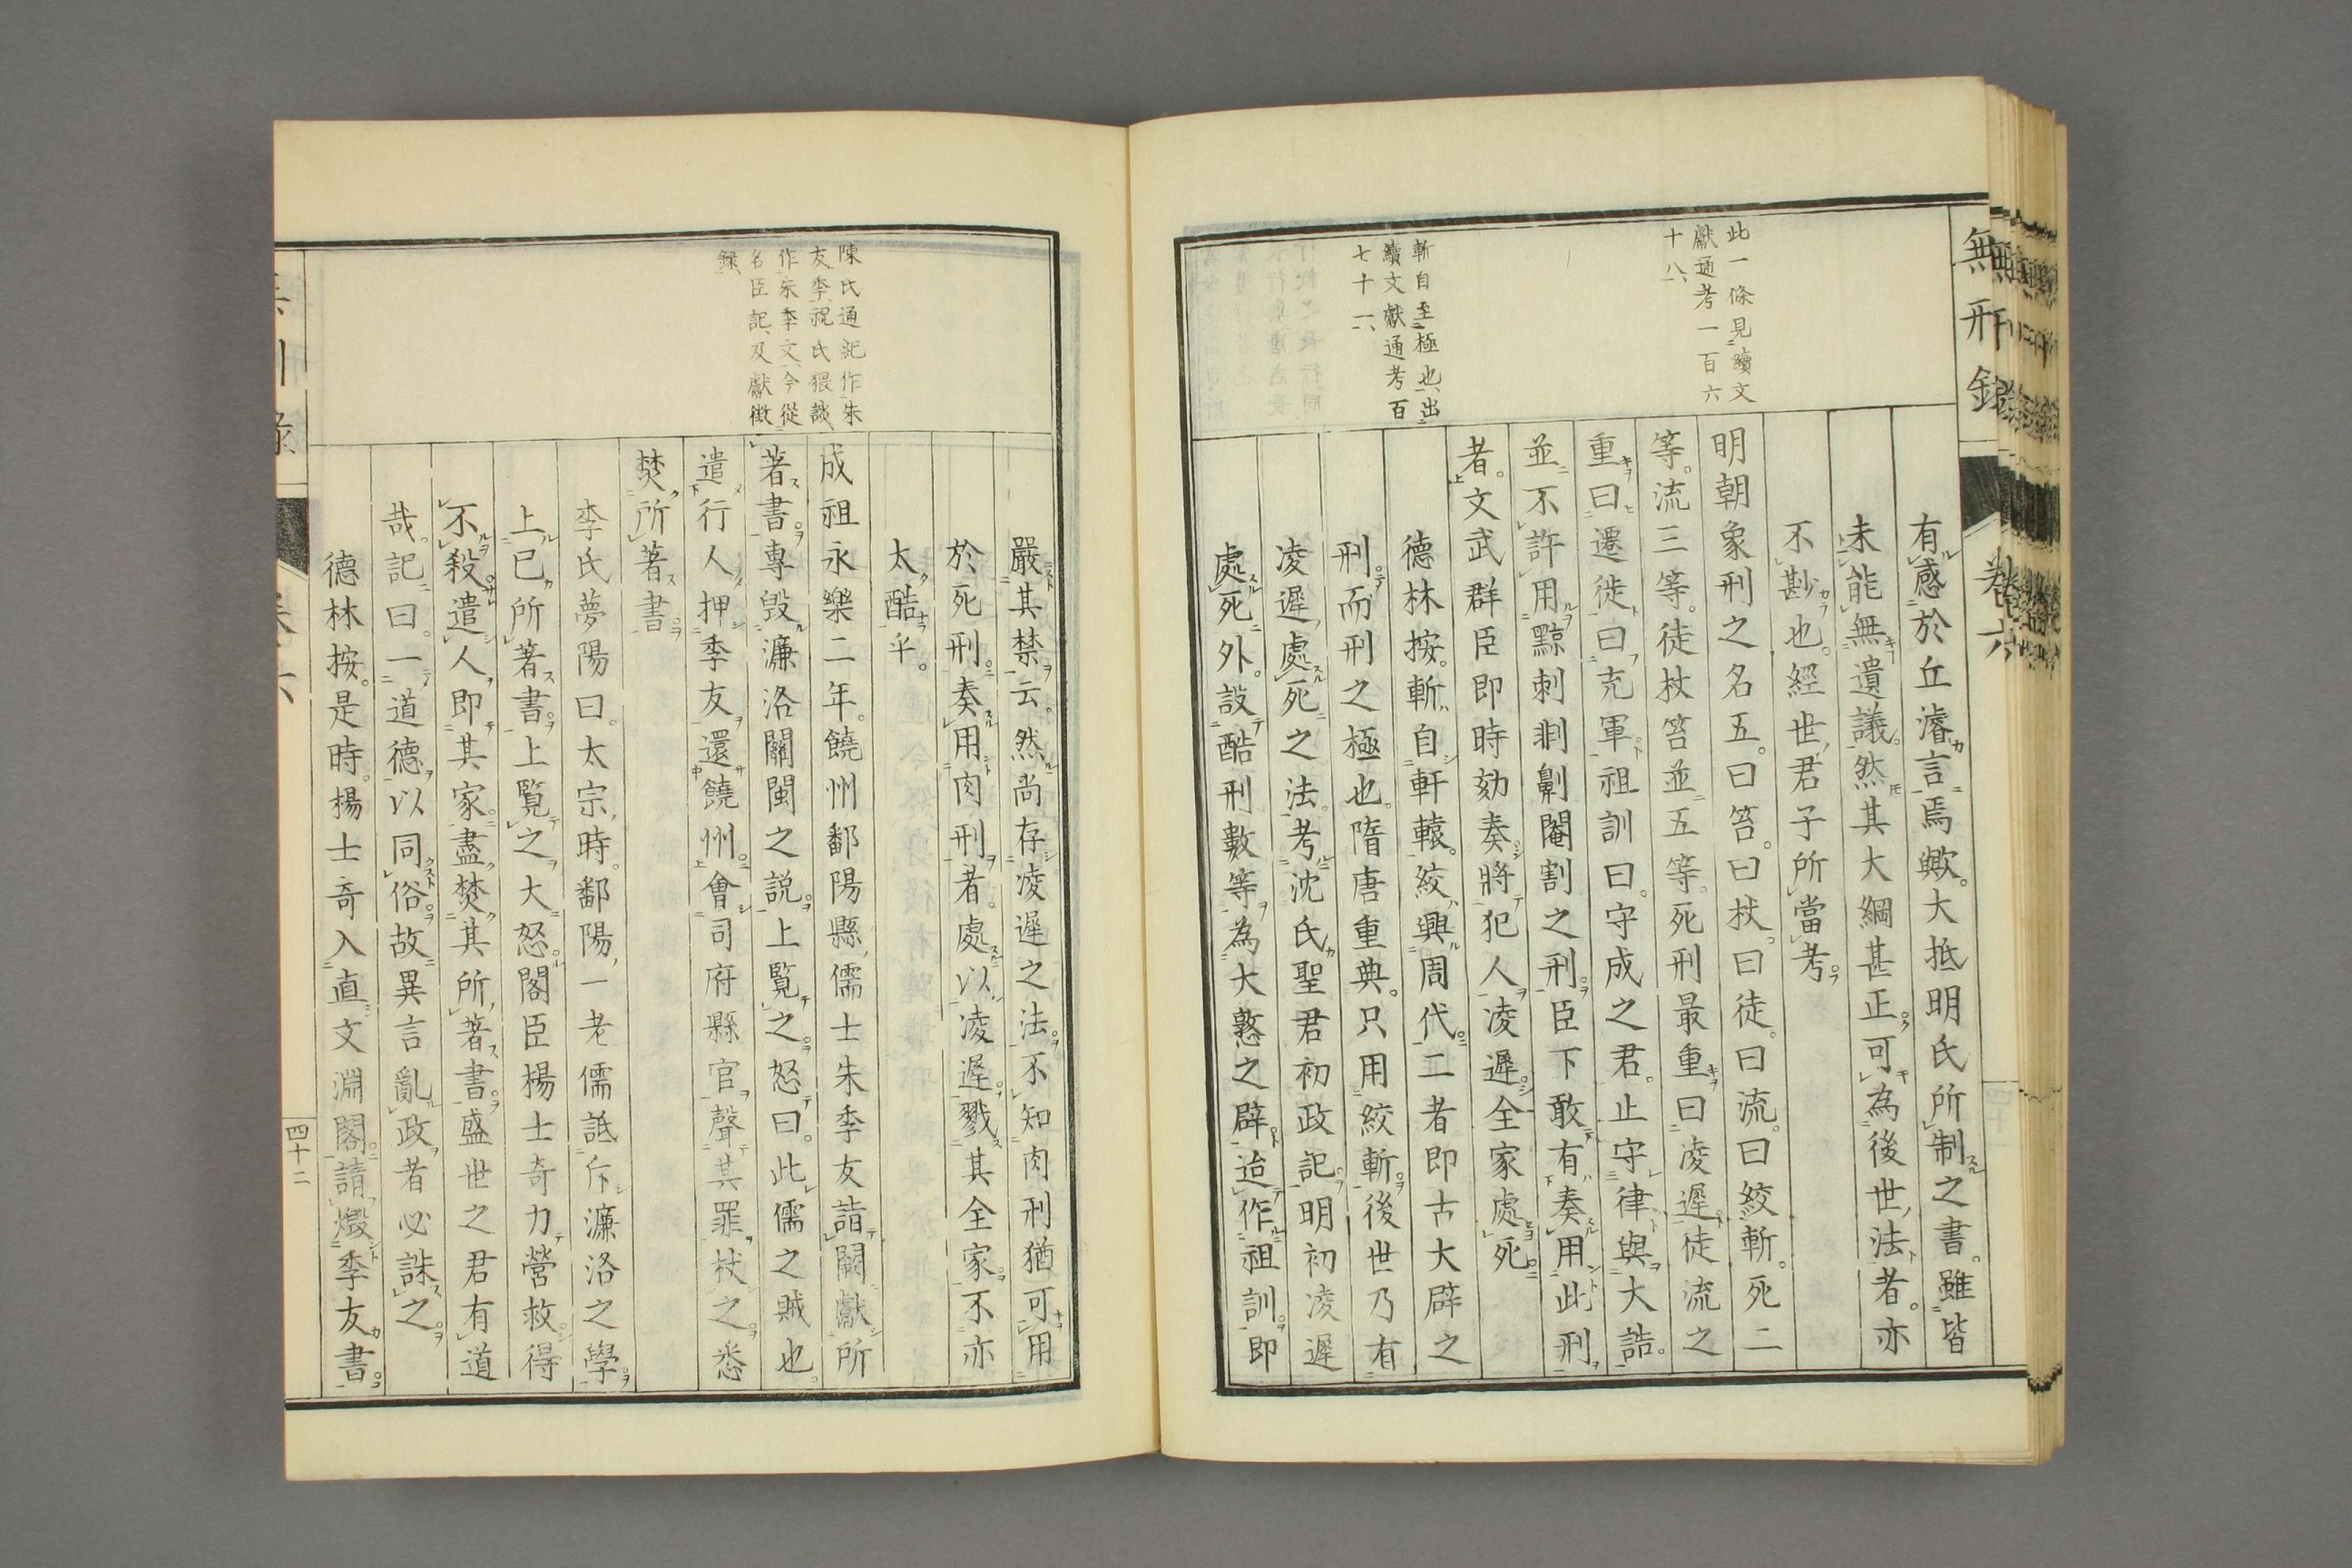 無刑録
卷六
此一條見續文
獻通考一百六
十八、
斬自至極也、出
續文獻通考百
七十一、
有感於丘濬言焉歟。大抵明氏所制之書。雖皆
未能無遺議。然其大綱甚正。可為後世法者。亦
不尠也。經世君子所當考。
明朝象刑之名五。曰笞。曰杖。曰徒。曰流。曰絞斬。死二
等。流三等。徒杖笞並五等。死刑最重曰凌遲。徒流之
重曰遷徙。曰充軍。祖訓曰。守成之君。止守律與大誥。
並不許用黥刺剕劓閹割之刑。臣下敢有奏用此刑
者。文武群臣即時劾奏。將犯人凌遲。全家處死。
德林按。斬自軒轅。絞興周代。二者即古大辟之
刑。而刑之極也。隋唐重典。只用絞斬。後世乃有
凌遲處死之法。考沈氏聖君初政記。明初凌遲
處死外。設酷刑數等。為大憝之辟。迨作祖訓。即
陳氏通記作朱
友季、祝氏猥談、
作朱季文、今從
名臣記、及獻徴
録、
嚴其禁云。然尚存凌遲之法。不知肉刑猶可用
於死刑。奏用肉刑者。處以凌遲。戮其全家。不亦
太酷乎。
成祖永樂二年。饒州鄱陽縣儒士朱季友詣闕獻所
著書。專毀濂洛關閩之説。上覧之。怒曰。此儒之賊也。
遣行人押季友還饒州。會司府縣官。聲其罪杖之。悉
焚所著書。
李氏夢陽曰。太宗時。鄱陽一老儒詆斥濂洛之學。
上已所著書。上覧之大怒。閣臣楊士奇力營救。得
不殺。遣人即其家。盡焚其所著書。盛世之君有道
哉。記曰。一道德以同俗。故異言亂政者必誅之。
德林按。是時。楊士奇入直文淵閣。請燬季友書。
四十二